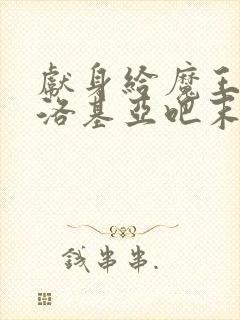 獻身給魔王
洛基亞吧末
錢串串.